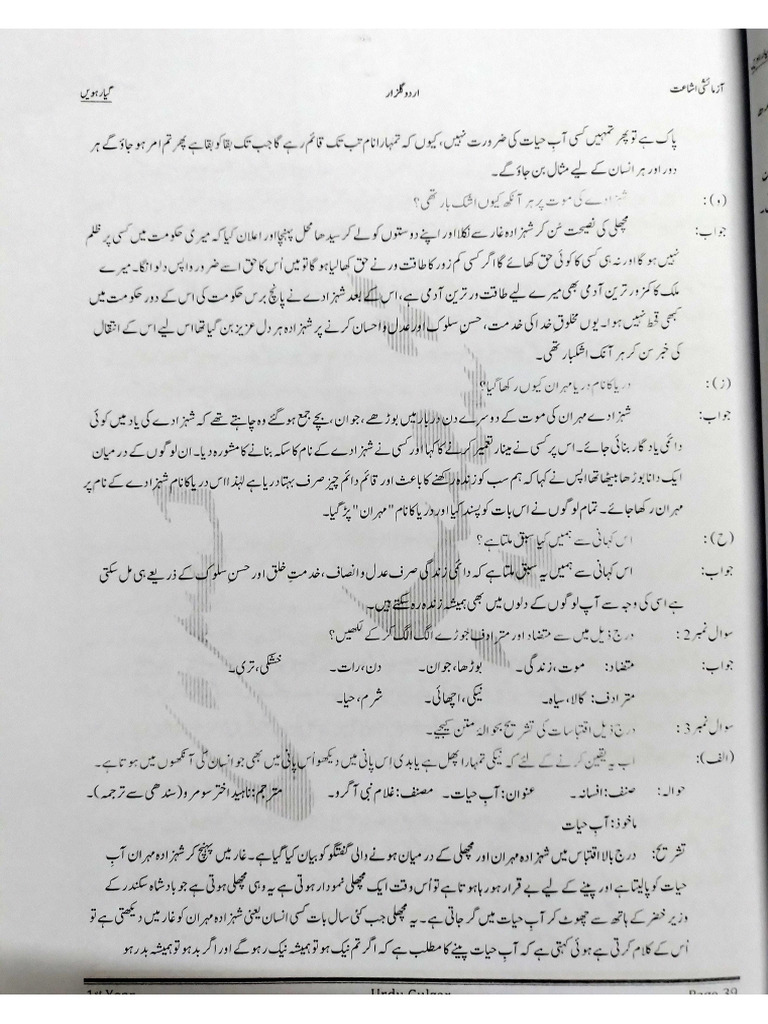 آزمائشی اشاعت اردو گلزار گیارہویں
پاک ہے تو پھر تمہیں کسی آب حیات کی ضرورت نہیں، کیوں کہ تمہارا نام تب تک قائم رہے گا جب تک بقا کو بقا ہے پھر تم امر ہو جاؤ گے ہر
دور اور ہر انسان کے لیے مثال بن جاؤ گے۔
(و): شہزادے کی موت پر ہر آنکھ کیوں اشک بار تھی؟
جواب: مچھلی کی نصیحت سُن کر شہزادہ غار سے نکلا اور اپنے دوستوں کو لے کر سیدھا محل پہنچا اور اعلان کیا کہ میری حکومت میں کسی پر ظلم
نہیں ہو گا اور نہ ہی کسی کا کوئی حق کھائے گا اگر کسی کم زور کا طاقت ور نے حق کھا لیا ہو گا تو میں اُس کا حق اسے ضرور واپس دلوانگا۔ میرے
ملک کا کمزور ترین آدمی بھی میرے لیے طاقت ور ترین آدمی ہے، اس کے بعد شہزادے نے پانچ برس حکومت کی اس کے دور حکومت میں
کبھی قحط نہیں ہوا۔ یوں مخلوق خدا کی خدمت، حسن سلوک اور عدل و احسان کرنے پر شہزادہ ہر دل عزیز بن گیا تھا اس لیے اس کے انتقال
کی خبر سن کر ہر آنک اشکبار تھی۔
(ز): دریا کا نام دریا مہران کیوں رکھا گیا؟
جواب: شہزادے مہران کی موت کے دوسرے دن دربار میں بوڑھے، جوان، بچے جمع ہو گئے وہ چاہتے تھے کہ شہزادے کی یاد میں کوئی
دائمی یاد گار بنائی جائے۔ اس پر کسی نے مینار تعمیر کرنے کا کہا اور کسی نے شہزادے کے نام کا سکہ بنانے کا مشورہ دیا۔ ان لوگوں کے درمیان
ایک دانا بوڑھا بیٹھا تھا اپس نے کہا کہ ہم سب کو زندہ رکھنے کا باعث اور قائم دائم چیز صرف بہتا دریا ہے لہٰذا اس دریا کا نام شہزادے کے نام پر
مہران رکھا جائے۔ تمام لوگوں نے اس بات کو پسند کیا اور دریا کا نام "مہران" پڑ گیا۔
(ح): اس کہانی سے ہمیں کیا سبق ملتا ہے؟
جواب: اس کہانی سے ہمیں یہ سبق ملتا ہے کہ دائمی زندگی صرف عدل و انصاف، خدمتِ خلق اور حسنِ سلوک کے ذریعے ہی مل سکتی
ہے اسی کی وجہ سے آپ لوگوں کے دلوں میں بھی ہمیشہ زندہ رہ سکتے ہیں۔
سوال نمبر 2: درج ذیل میں سے متضاد اور مترادف جوڑے الگ الگ کر کے لکھیں؟
جواب: متضاد: موت، زندگی۔ بوڑھا، جوان۔ دن، رات۔ خشکی، تری۔
مترادف: کالا، سیاہ۔ نیکی، اچھائی۔ شرم، حیا۔
سوال نمبر 3: درج ذیل اقتباسات کی تشریح بحوالۂ متن کیجیے۔
(الف): اب یہ یقین کرنے کے لئے کہ نیکی تمہارا پھل ہے یا بدی اِس پانی میں دیکھو اُس پانی میں بھی جو انسان کی آنکھوں میں ہوتا ہے۔
حوالہ: صنف: افسانہ۔ عنوان: آبِ حیات۔ مصنف: غلام نبی آگرو۔ مترجم: ناہید اختر سومرو (سندھی سے ترجمہ)۔
ماخوذ: آب حیات
تشریح: درج بالا اقتباس میں شہزادہ مہران اور مچھلی کے درمیان ہونے والی گفتگو کو بیان کیا گیا ہے۔ غار میں پہنچ کر شہزادہ مہران آبِ
حیات کو پا لیتا ہے اور پینے کے لیے بے قرار ہو رہا ہوتا ہے تو اُس وقت ایک مچھلی نمودار ہوتی ہے یہ وہی مچھلی ہوتی ہے جو بادشاہ سکندر کے
وزیر خضر کے ہاتھ سے چھوٹ کر آبِ حیات میں گر جاتی ہے۔ یہ مچھلی جب کئی سال بات کسی انسان یعنی شہزادہ مہران کو غار میں دیکھتی ہے تو
اُس کے کلام کرتی ہے ہوئی کہتی ہے کہ آبِ حیات پینے کا مطلب ہے کہ اگر تم نیک ہو تو ہمیشہ نیک رہو گے اور اگر بد ہو تو ہمیشہ بد رہو
1st Year Urdu Gulzar Page 39